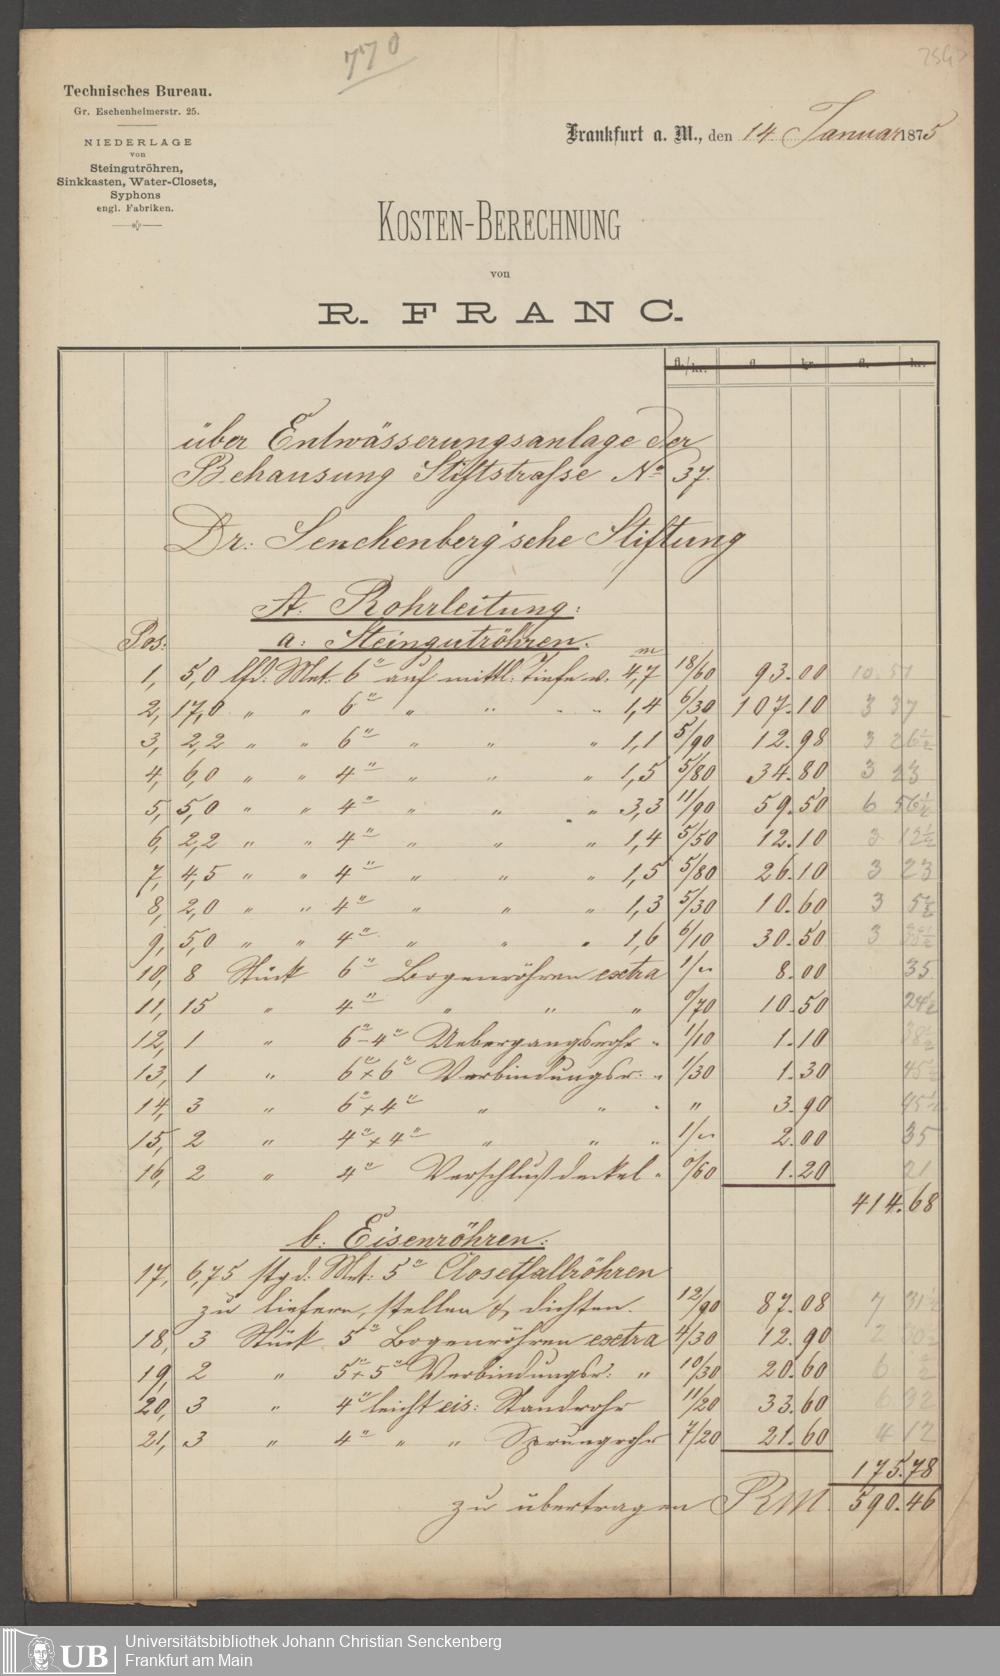 770
Technisches Bureau.
Gr. Eschenheimerstr. 25.
NIEDERLAGE
von
Steingutröhren,
Sinkkasten, Water-Closets,
Syphons
engl. Fabriken.
Frankfurt a. M., den 14 Januar 1875
KOSTEN-BERECHNUNG
von
R. FRANC.
fl./kr. fl. kr. fl. kr.
über Entwässerungsanlage der
Behausung Stiftstraße No 37.
Dr: Senckenberg'sche Stiftung
A. Rohrleitung:
Pos: a: Steingutröhren:
1, 5,0 lfd: Met: 6" auf mittl: Tiefe v. 4,7 m 18/60 93.00 10.51
2, 17,0 " " 6" " " " 1,4 6/30 107.10 3 37
3, 2,2 " " 6" " " " 1,1 5/90 12.98 3 26½
4, 6,0 " " 4" " " " 1,5 5/80 34.80 3 23
5, 5,0 " " 4" " " " 3,3 11/90 59.50 6 56½
6, 2,2 " " 4" " " " 1,4 5/50 12.10 3 12½
7, 4,5 " " 4" " " " 1,5 5/80 26.10 3 23
8, 2,0 " " 4" " " " 1,3 5/30 10.60 3 5½
9, 5,0 " " 4" " " " 1,6 6/10 30.50 3
10, 8 Stück 6" Bogenröhren extra 1/" 8.00 35
11, 15 " 4" " " " 0/70 10.50 24½
12, 1 " 6"-4" Uebergangsrohr " 1/10 1.10 38½
13, 1 " 6"x6" Verbindungsr: " 1/30 1.30 45½
14, 3 " 6"x4" " " " " 3.90 45½
15, 2 " 4"x4" " " " 1/" 2.00 35
16, 2 " 4" Verschlußdeckel " 0/60 1.20 21
414.68
b: Eisenröhren:
17, 6,75 stgd: Met: 5" Closetfallröhren
zu liefern, stellen & dichten. 12/90 87.08 7 31½
18, 3 Stück 5" Bogenröhren extra 4/30 12.90 2 30½
19, 2 " 5"x5" Verbindungsr: " 10/30 20.60 6
20, 3 " 4" leicht eis: Standrohr 11/20 33.60 6 32
21, 3 " 4" " " Sprungrohr 7/20 21.60 4 12
175.78
zu übertragen RM. 590.46
UB
Universitätsbibliothek Johann Christian Senckenberg
Frankfurt am Main